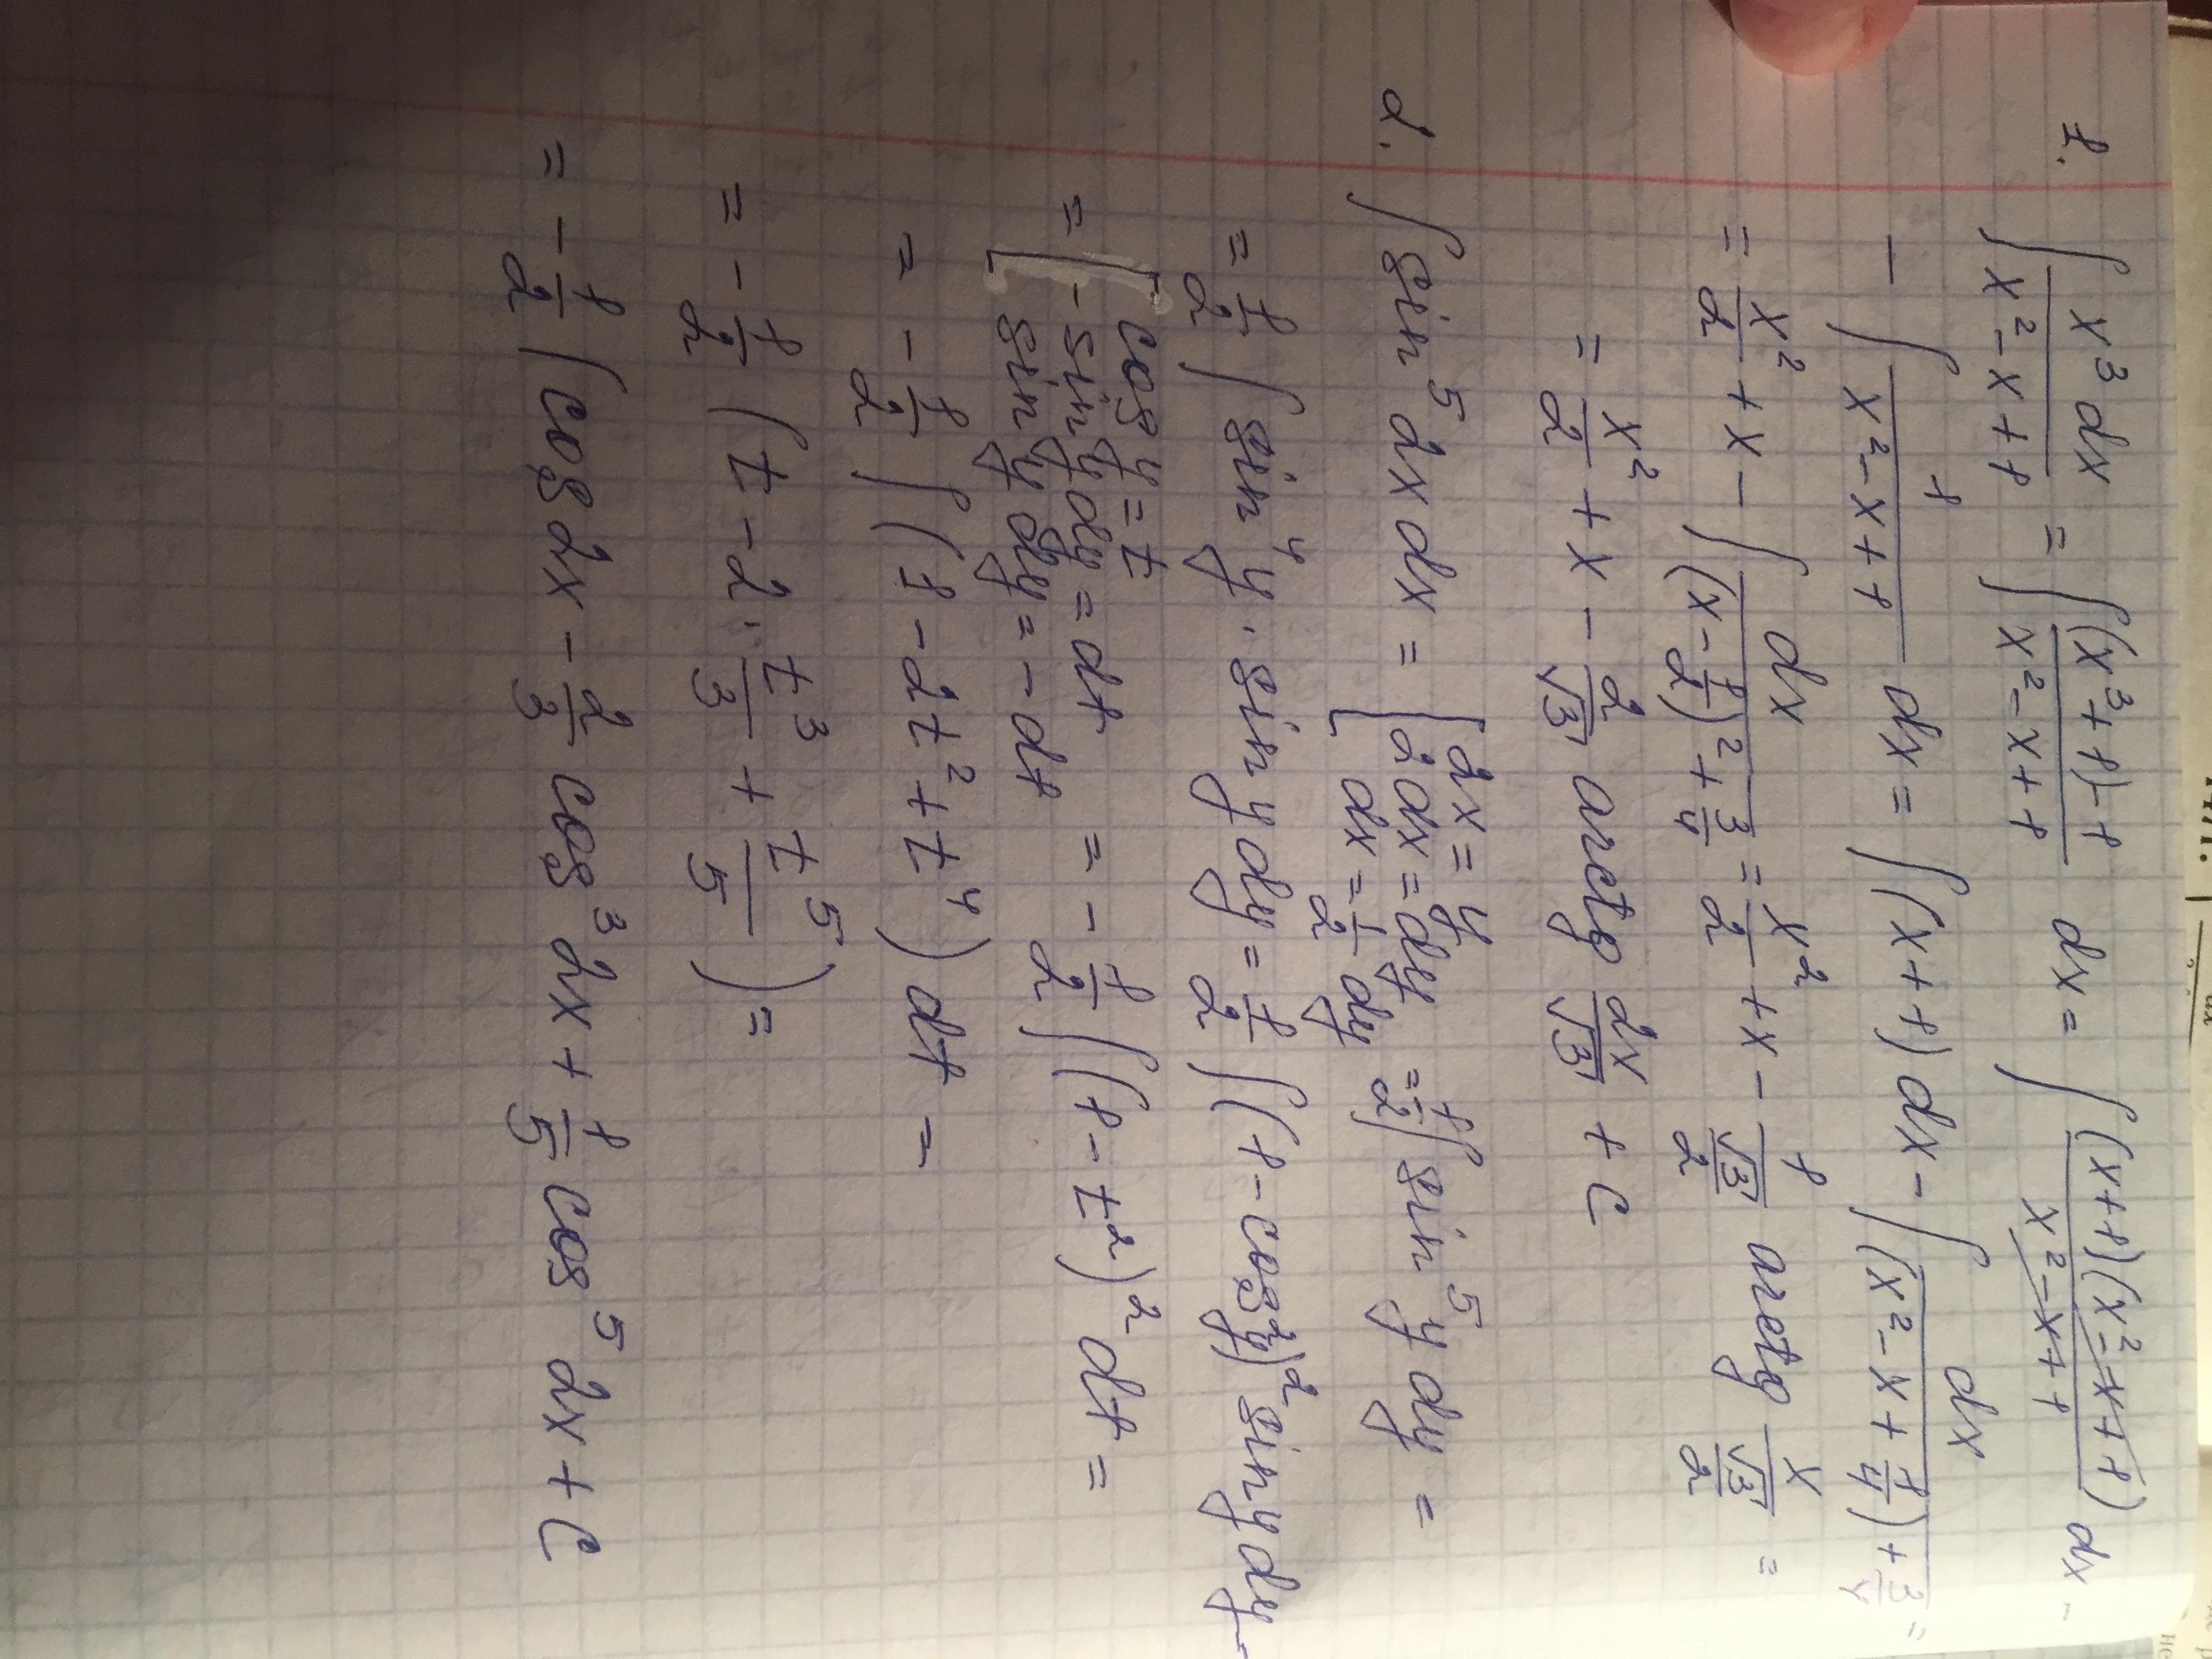 1. ∫ x³dx / (x² - x + 1) = ∫ ((x³ + 1) - 1) / (x² - x + 1) dx = ∫ (x + 1)(x² - x + 1) / (x² - x + 1) dx -
- ∫ 1 / (x² - x + 1) dx = ∫ (x + 1) dx - ∫ dx / ((x² - x + 1/4) + 3/4) =
= x²/2 + x - ∫ dx / ((x - 1/2)² + 3/4) = x²/2 + x - 1/(√3/2) arctg x/(√3/2) =
= x²/2 + x - 2/√3 arctg 2x/√3 + C
2. ∫ sin⁵ 2x dx = [ 2x = y
2 dx = dy
dx = 1/2 dy = 1/2 ∫ sin⁵ y dy =
= 1/2 ∫ sin⁴ y · sin y dy = 1/2 ∫ (1 - cos² y)² sin y dy =
= [ cos y = t
- sin y dy = dt
sin y dy = - dt = - 1/2 ∫ (1 - t²)² dt =
= - 1/2 ∫ (1 - 2t² + t⁴) dt =
= - 1/2 (t - 2 · t³/3 + t⁵/5) =
= - 1/2 (cos 2x - 2/3 cos³ 2x + 1/5 cos⁵ 2x + C